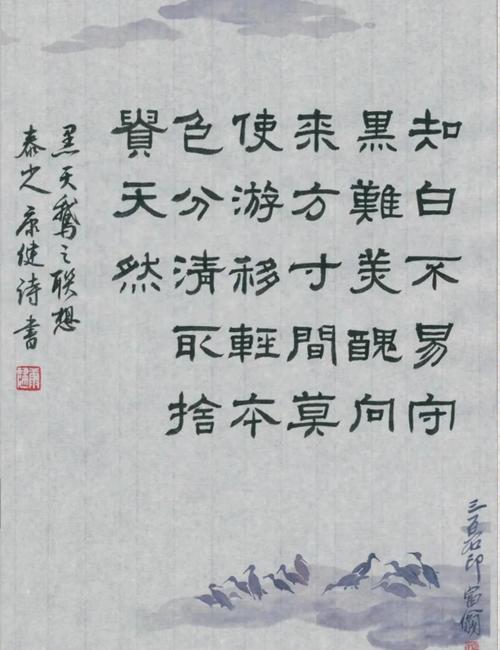 知白不易守
黑難美醜向
来方寸間莫
使游移輕本
色分清取捨
貴天然
黑天鵝之联想
康健诗書
三百石印富翁